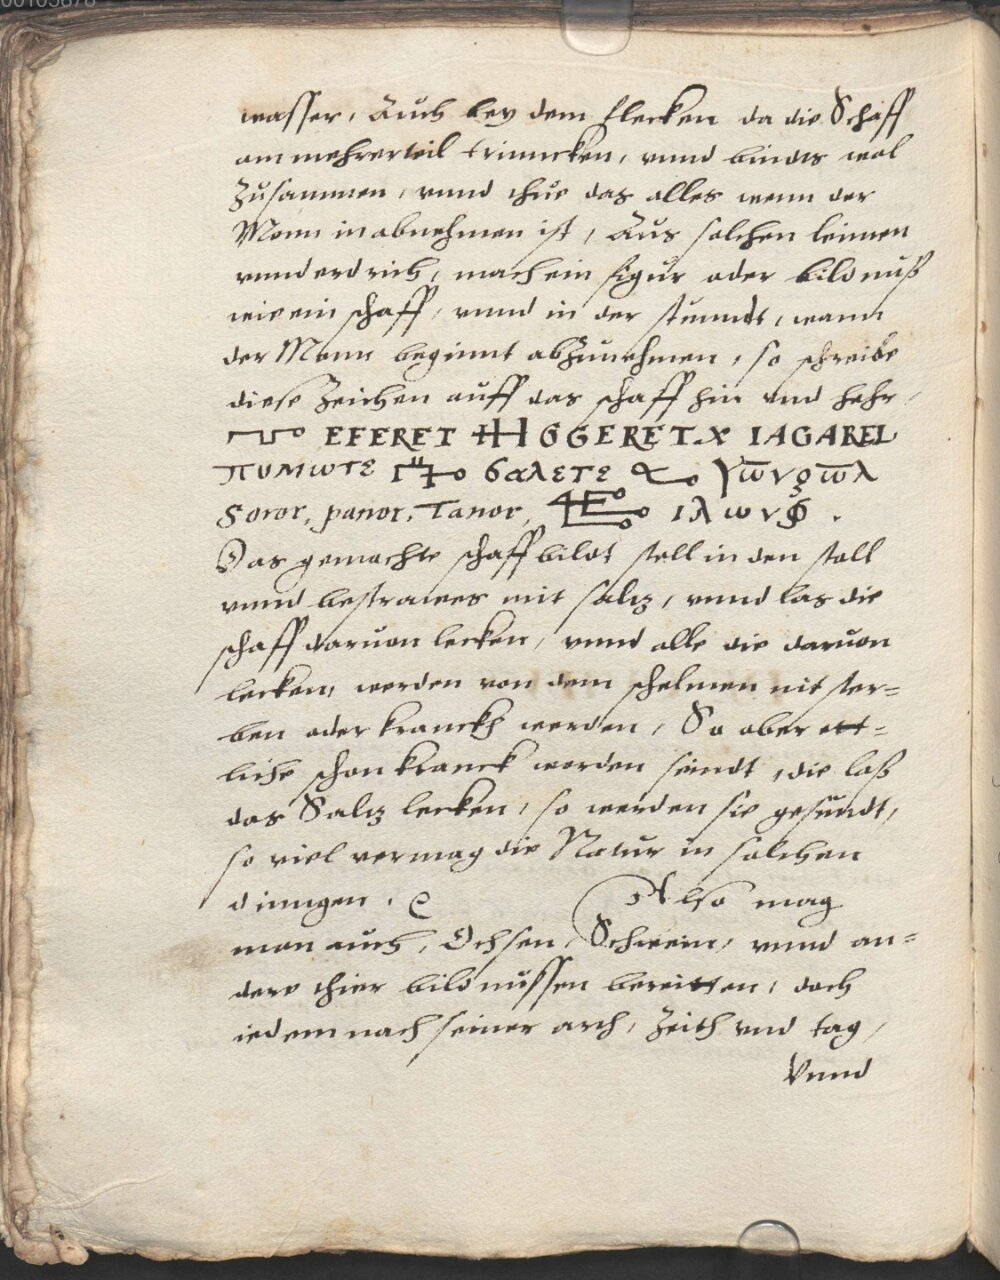 00105878
wasser, Auch bey dem flecken da die Schaff
am mehrerteil trinncken, vnnd binds wol
zusammen, vnnd thue das alles wenn der
Monn in abnehmen ist, Aus solchen leimen
vnnd erdrich, mach ein figur oder bildnuß
wie ein schaff, vnnd in der stunndt, wann
der Monn beginnt abzunehmen, so schreibe
diese Zeichen auff das schaff hin vnd hehr,
EFERET GGERET X IAGAREL
πυμωτε βαλετε
Soror, panor, Tanor, ιλωνφ .
Das gemachte schaff bildt stell in den stall
vnnd bestrawes mit saltz, vnnd las die
schaff daruon lecken, vnnd alle die daruon
lecken, werden von dem schelmen nit ster=
ben oder kranckh werden, So aber ett=
liche schon kranck worden seindt, die laß
das Saltz lecken, so werden sie gesundt,
so viel vermag die Natur in solchen
dinngen. Also mag
man auch, Ochsen, Schwein, vnnd an=
dere thier bildnussen bereitten, doch
iedem nach seiner arth, Zeith vnd tag,
Vnnd